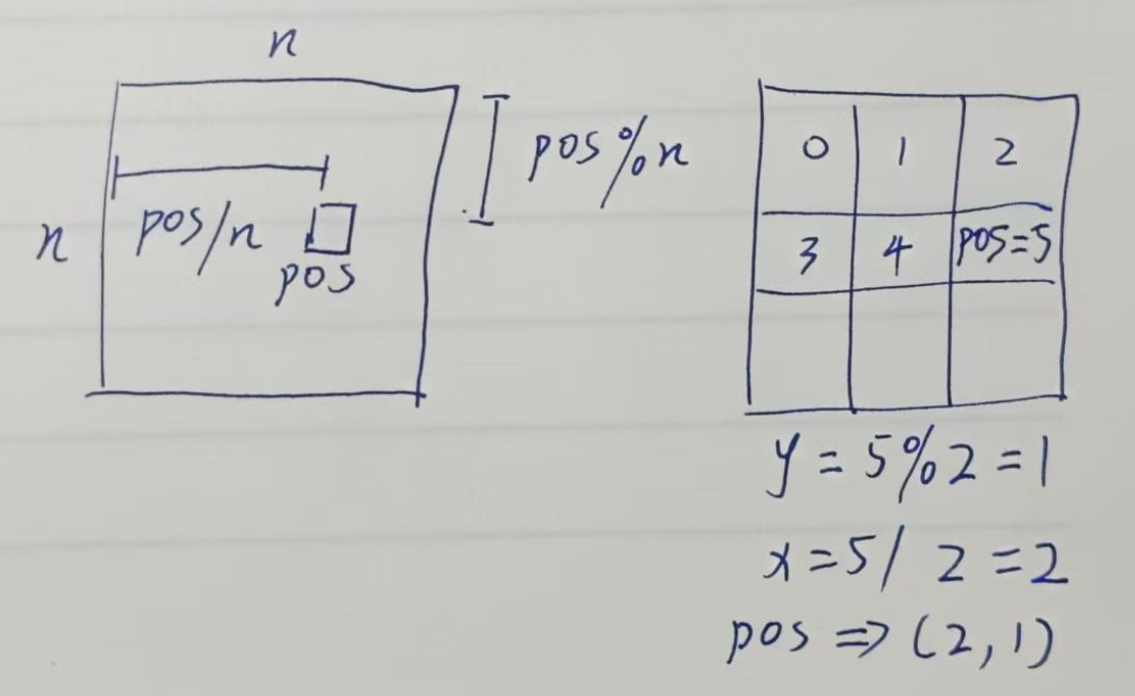 n
pos%n
pos/n
n
pos
0 1 2
3 4 pos=5
y=5%2=1
x=5/2=2
pos⇒(2,1)